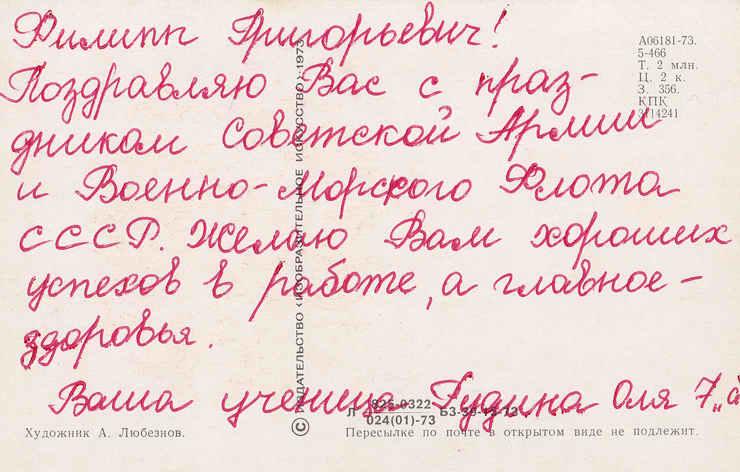 Филипп Григорьевич!
Поздравляю Вас с праз-
дником Советской Армии
и Военно-Морского Флота
СССР. Желаю Вам хороших
успехов в работе, а главное -
здоровья.
Ваша ученица Гудина Оля 7 „а
А06181-73.
5-466
Т. 2 млн.
Ц. 2 к.
З. 356.
КПК
3114241
© ИЗДАТЕЛЬСТВО «ИЗОБРАЗИТЕЛЬНОЕ ИСКУССТВО», 1973
024(01)-73
Художник А. Любезнов.
Пересылке по почте в открытом виде не подлежит.